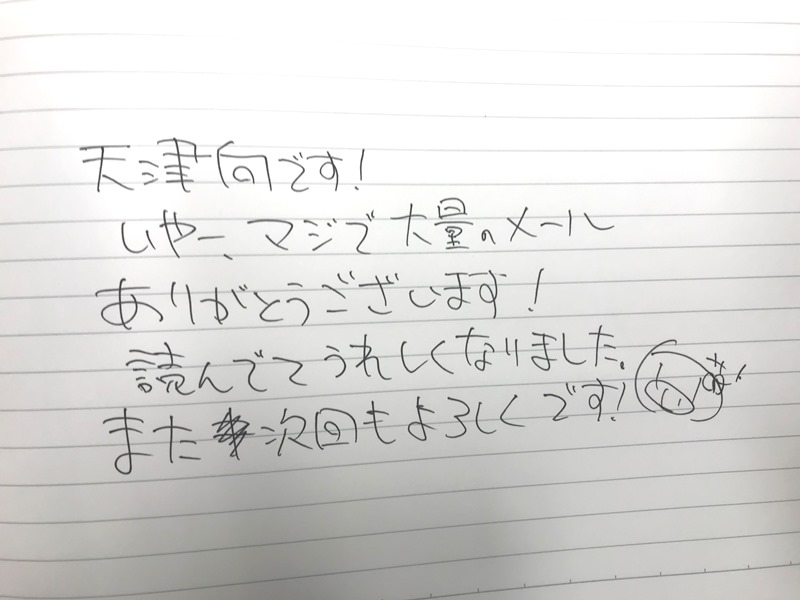 天津向です!
いやー、マジで大量のメール
ありがとうございます!
読んでてうれしくなりました。
また次回もよろしくです!